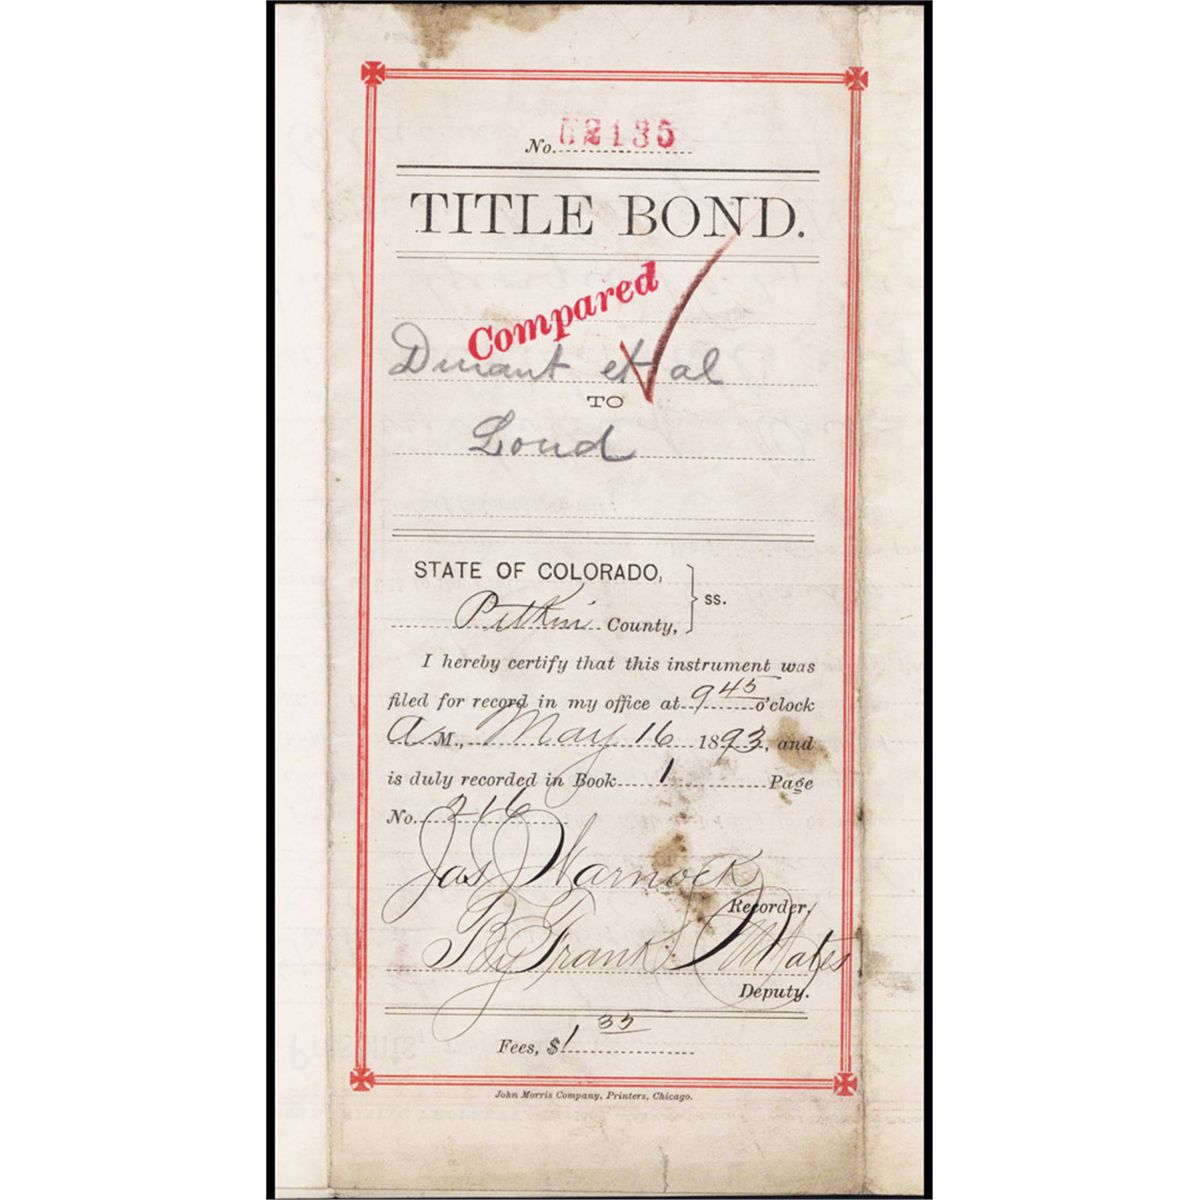 No. 62135
TITLE BOND.
Compared
Durant et al
TO
Loud
STATE OF COLORADO,
Pitkin County, } ss.
I hereby certify that this instrument was
filed for record in my office at 9 45 o'clock
A M., May 16 1893, and
is duly recorded in Book 1 Page
No. 216
Jas Warnock
Recorder,
By Frank Mates
Deputy.
Fees, $1 35
John Morris Company, Printers, Chicago.